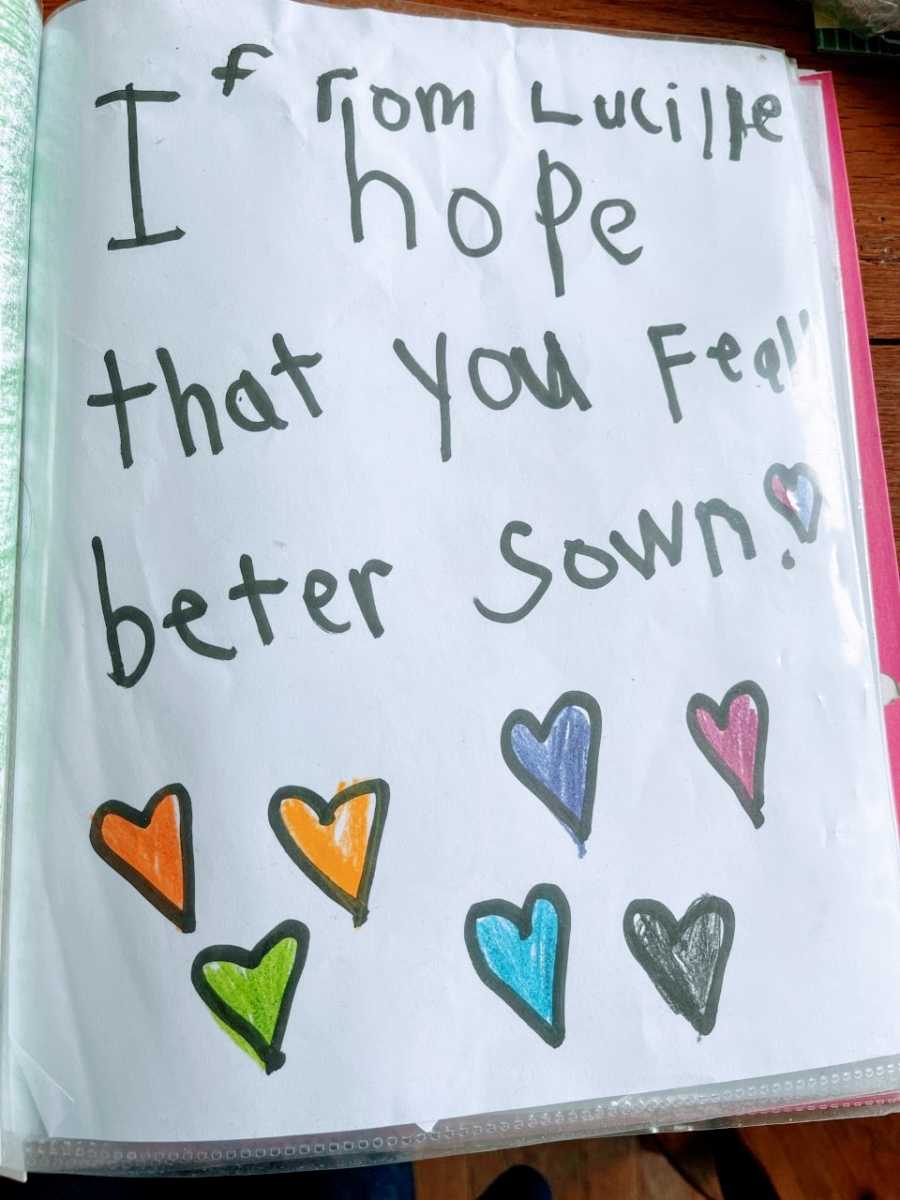 from Lucille
I hope
that you Feal
beter Sown!